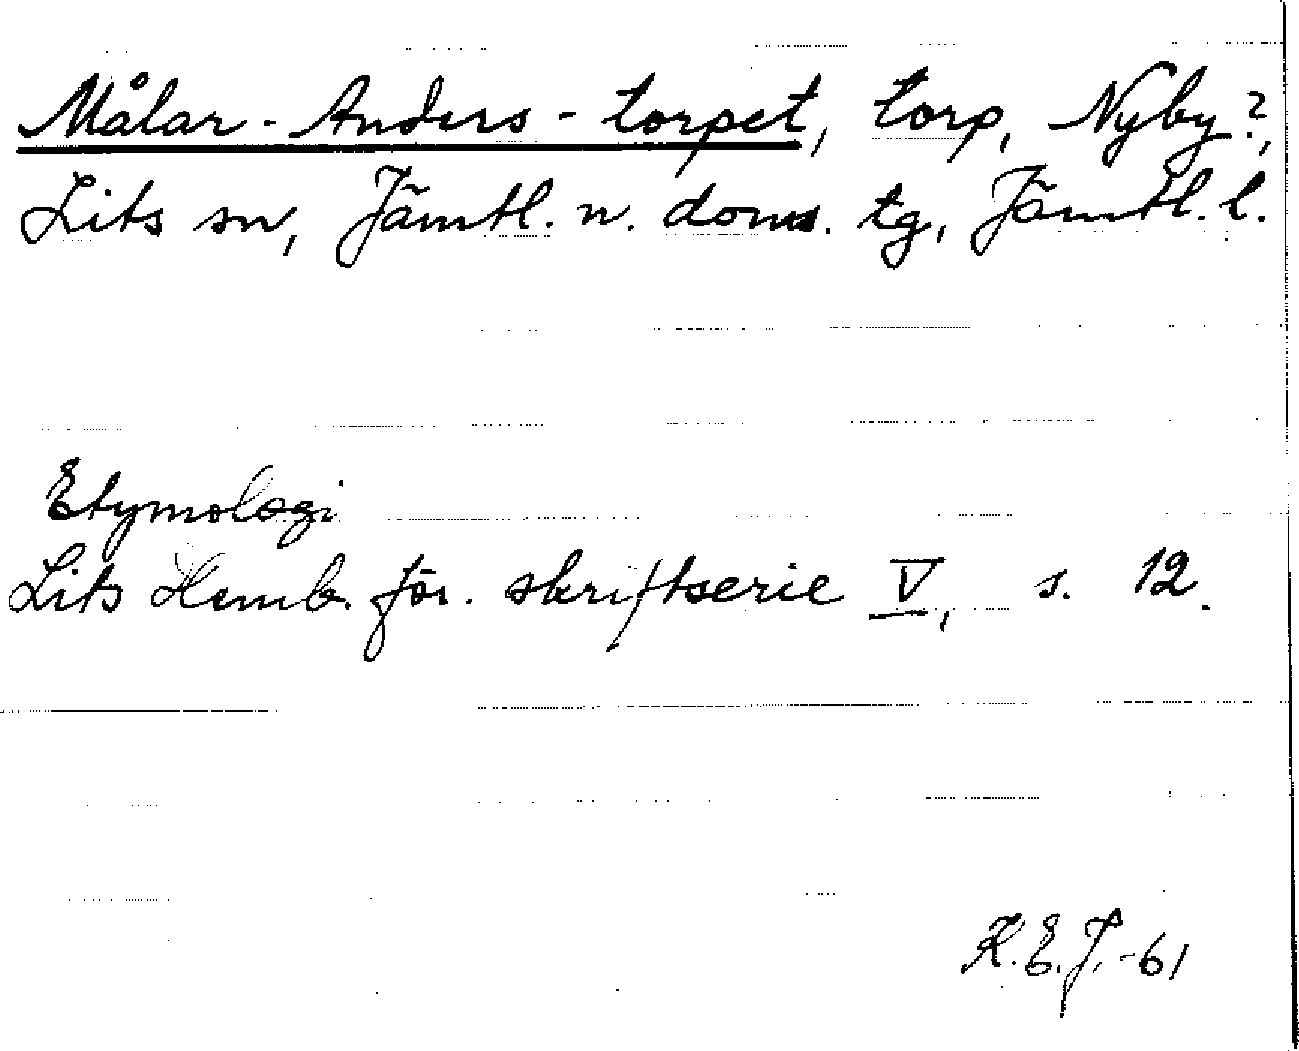 Målar-Anders-torpet, torp, Nyby?,
Lits sn, Jämtl. n. doms. tg, Jämtl. l.
Etymologi
Lits Hemb. för. skriftserie V, s. 12.
K.E.J. -61